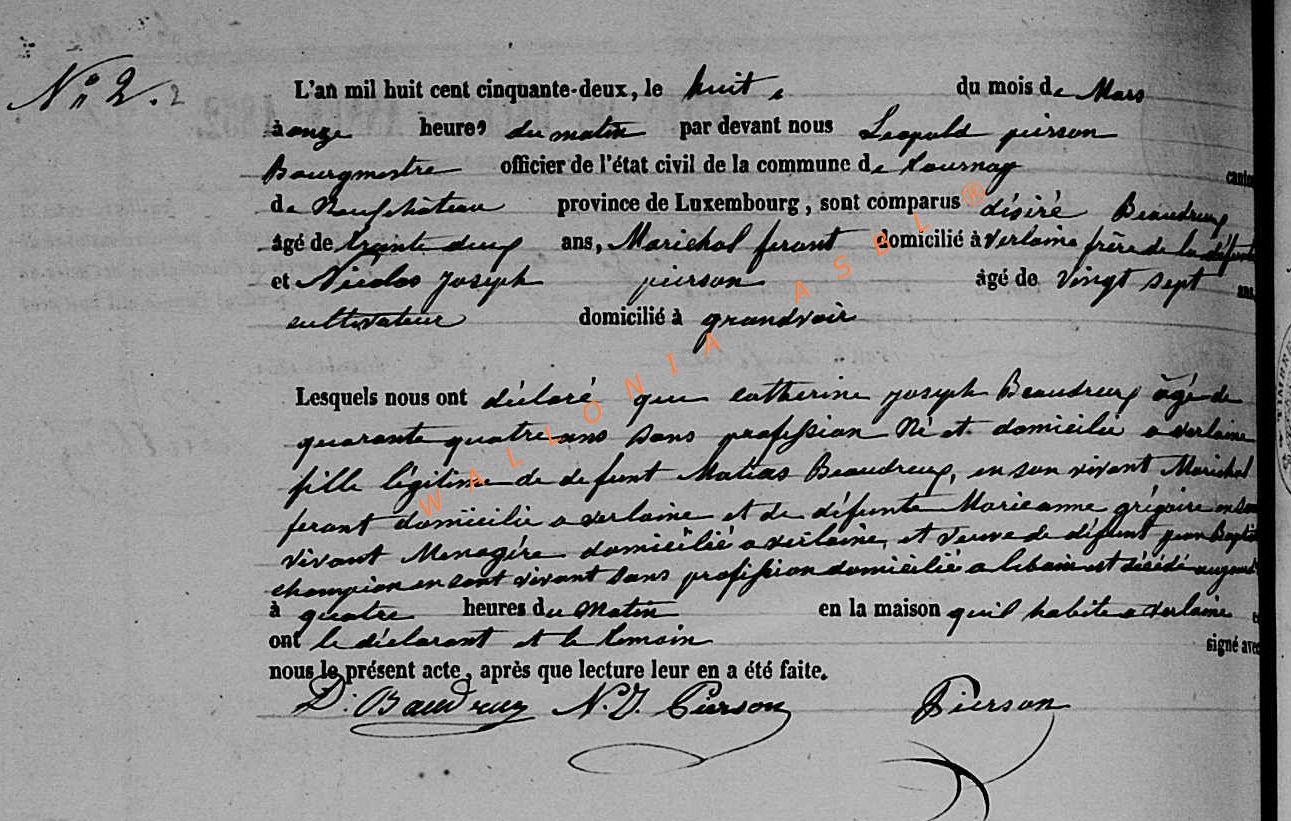 N° 2. 2
L'an mil huit cent cinquante-deux, le huit du mois de Mars
à onze heures du matin par devant nous Leopold pierson
Bourgmestre officier de l'état civil de la commune de tournay canton
de Neufchâteau province de Luxembourg, sont comparus désiré Beaudreux
âgé de trente deux ans, Marichal ferant domicilié à verlaine frère de la défunte
et Nicolas Joseph pierson âgé de vingt sept ans,
cultivateur domicilié à grandvoir
Lesquels nous ont déclaré que catherine joseph Beaudreux âgé de
quarante quatre ans sans profession Né et domicilié a verlaine
fille légitime de defunt Matias Beaudreux, en son vivant Marichal
ferant domicilié a verlaine et de défunte Marieanne grégoire en son
vivant Menagère domicilié a verlaine, et veuve de défunt jean Baptis
champion en sont vivant sans profession domicilié a est décédé
à quatre heures du Matin en la maison qu'il habite a verlaine
ont le déclarant et le temoin signé avec
nous le présent acte, après que lecture leur en a été faite.
D. Baudreux N. J. Pierson Pierson
WALLONIA ASBL ®